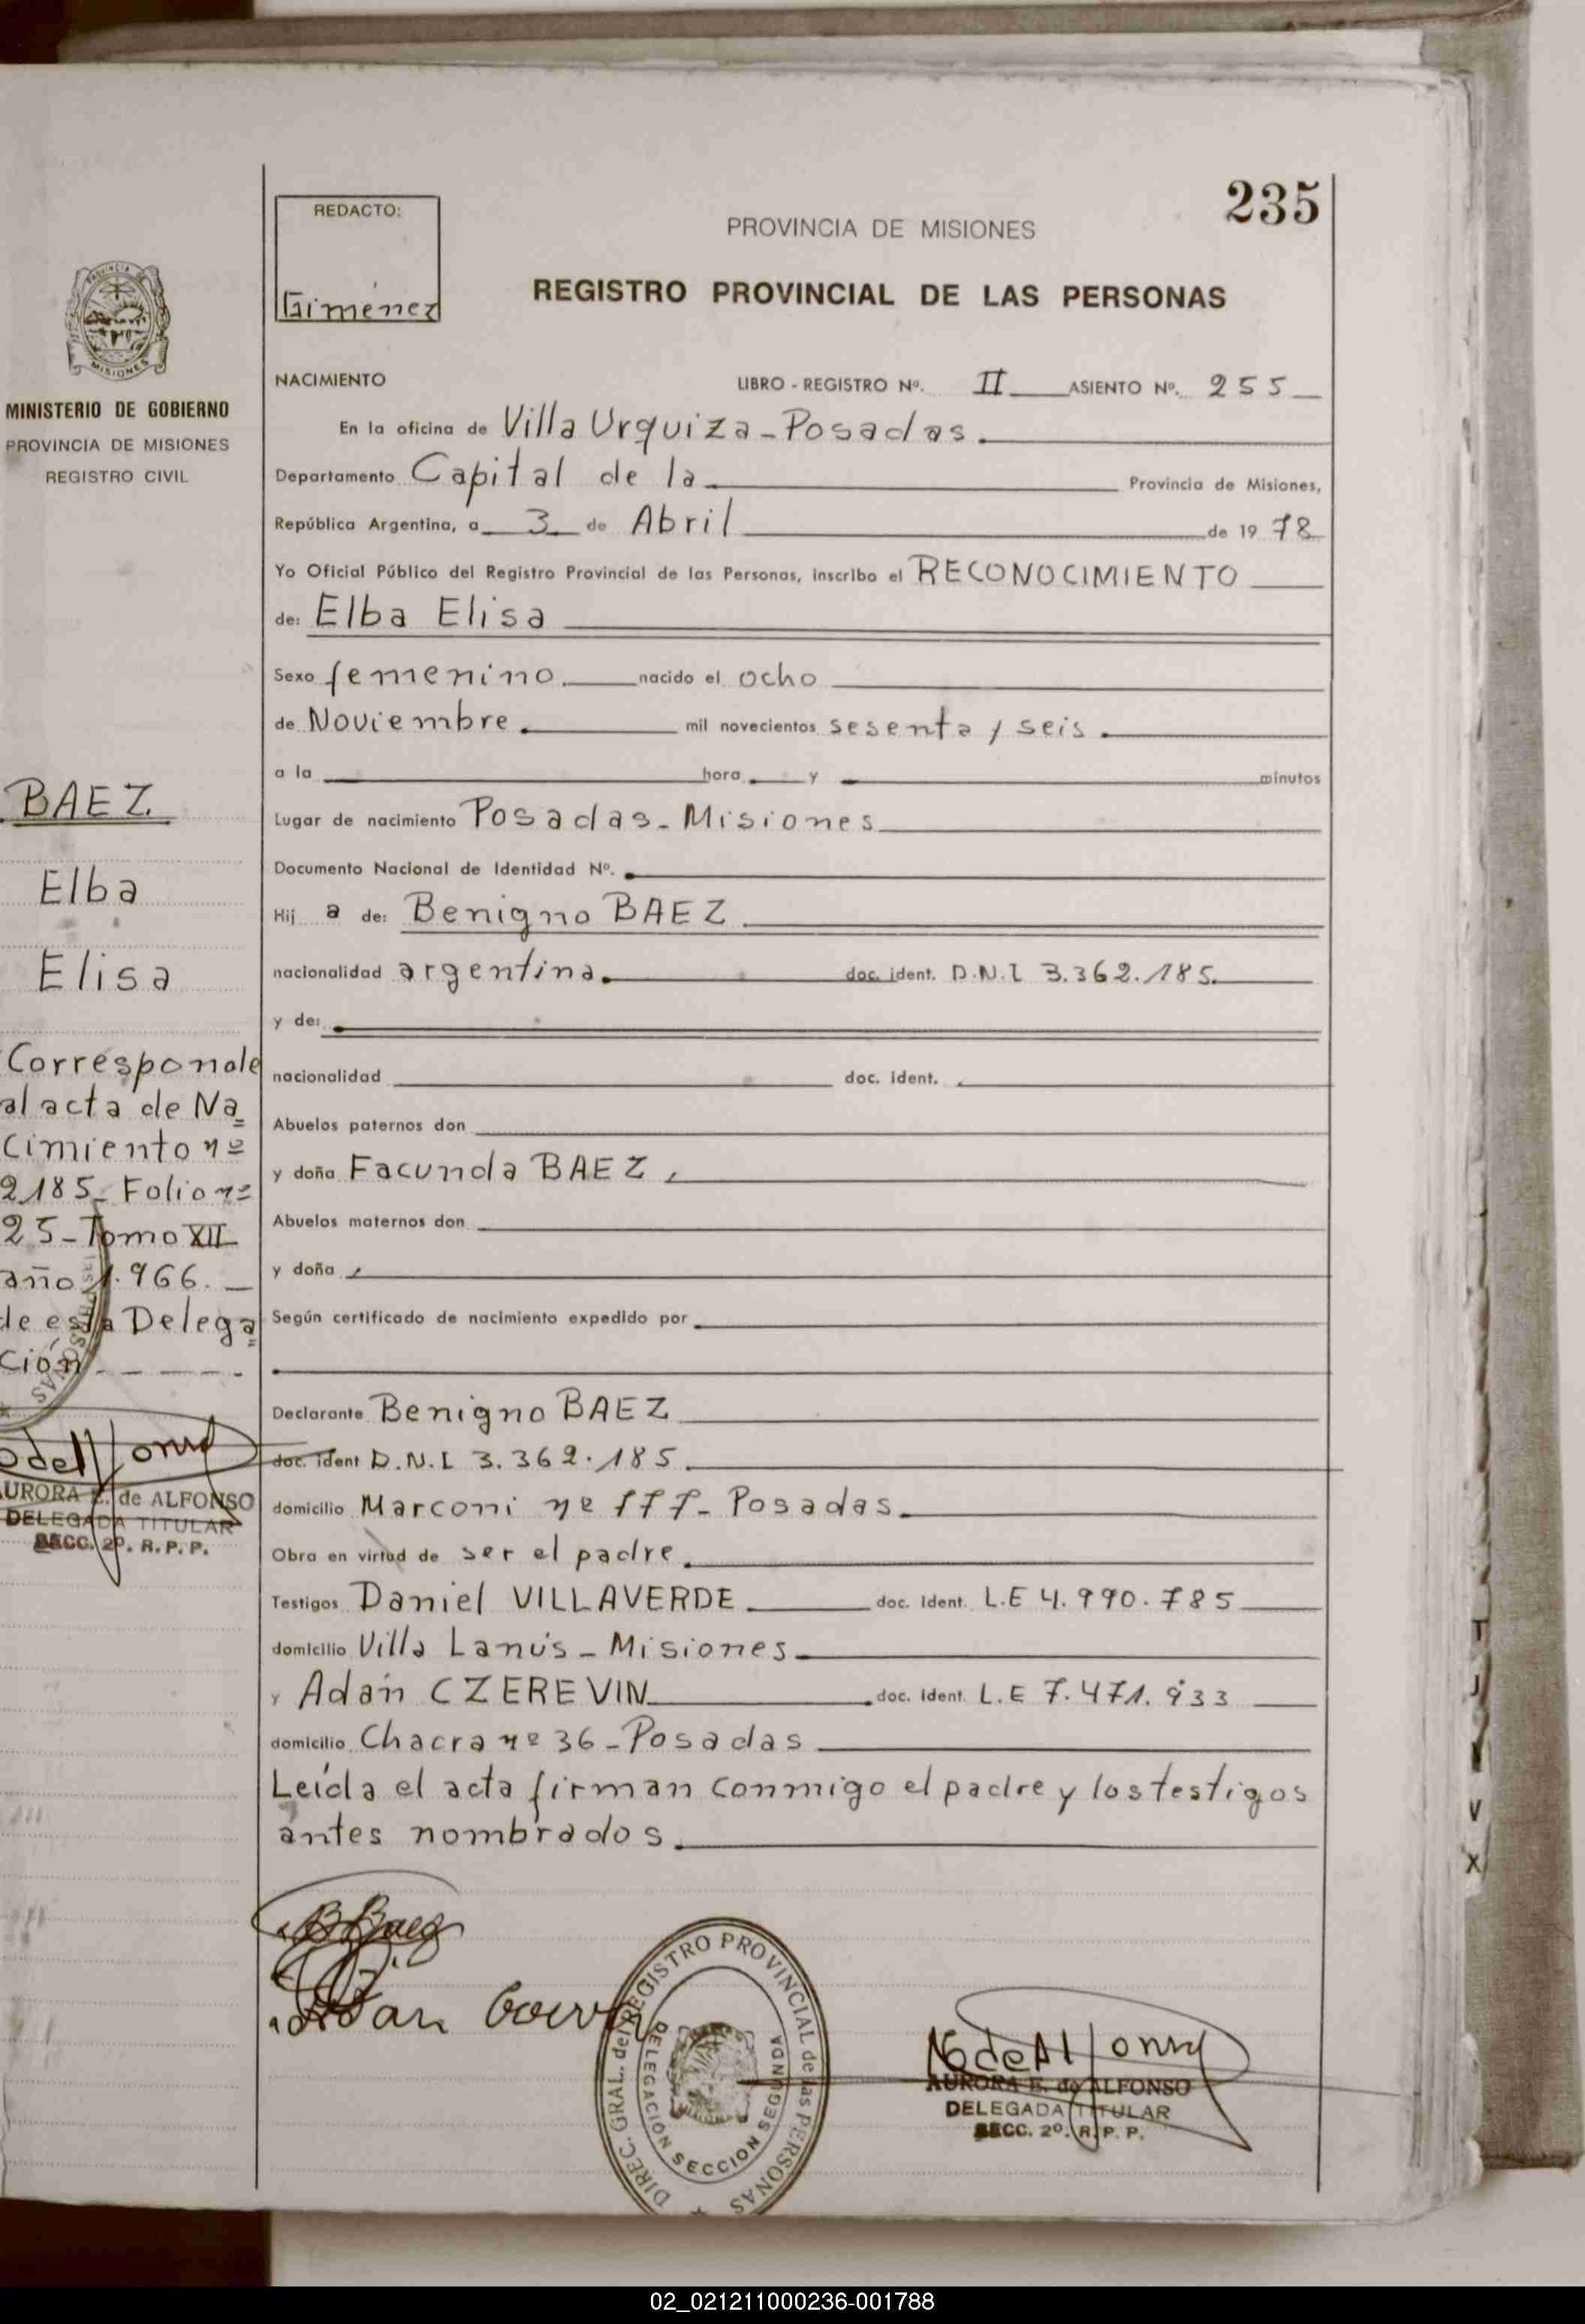 235
REDACTO:
Gimenez
PROVINCIA DE MISIONES
REGISTRO PROVINCIAL DE LAS PERSONAS
MISIONES
MINISTERIO DE GOBIERNO
PROVINCIA DE MISIONES
REGISTRO CIVIL
NACIMIENTO LIBRO - REGISTRO Nº. II ASIENTO Nº. 255
En la oficina de Villa Urquiza - Posadas.
Departamento Capital de la Provincia de Misiones,
República Argentina, a 3 de Abril de 1978
Yo Oficial Público del Registro Provincial de las Personas, inscribo el RECONOCIMIENTO
de: Elba Elisa
Sexo femenino. nacido el ocho
de Noviembre. mil novecientos sesenta y seis.
a la hora y minutos
Lugar de nacimiento Posadas - Misiones
Documento Nacional de Identidad Nº.
Hij a de: Benigno BAEZ
nacionalidad argentina. doc. ident. D.N.I 3.362.185.
y de:
nacionalidad doc. ident.
Abuelos paternos don
y doña Facunda BAEZ,
Abuelos maternos don
y doña
Según certificado de nacimiento expedido por
Declarante Benigno BAEZ
doc. ident D.N.I 3.362.185.
domicilio Marconi nº 177 - Posadas.
Obra en virtud de ser el padre.
Testigos Daniel VILLAVERDE doc. ident. L.E 4.990.785
domicilio Villa Lanús - Misiones
y Adán CZEREVIN doc. ident. L.E 7.471.933
domicilio Chacra nº 36 - Posadas
Leída el acta firman conmigo el padre y los testigos
antes nombrados.
BAEZ
Elba
Elisa
Corresponde
al acta de Na
cimiento nº
2185 - Folio nº
25 - Tomo XII
año 1.966.
de esta Delega
ción
AURORA E. de ALFONSO
DELEGADA TITULAR
SECC. 2º. R. P. P.
B Baez
DIREC. GRAL. del REGISTRO PROVINCIAL de las PERSONAS
DELEGACIÓN SECCION SEGUNDA
AURORA E. de ALFONSO
DELEGADA TITULAR
SECC. 2º. R. P. P.
T
J
V
X
02_021211000236-001788